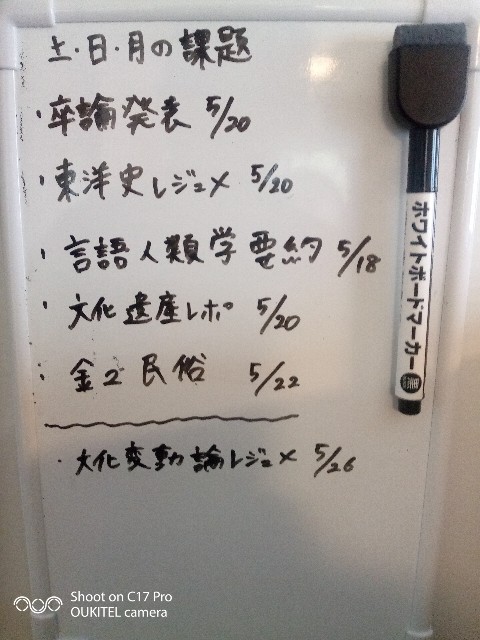 土・日・月の課題
・卒論発表 5/20
・東洋史レジュメ 5/20
・言語人類学要約 5/18
・文化遺産レポ 5/20
・金2民俗 5/22
・文化変動論レジュメ 5/26
ホワイトボードマーカー 黒
Shoot on C17 Pro
OUKITEL camera